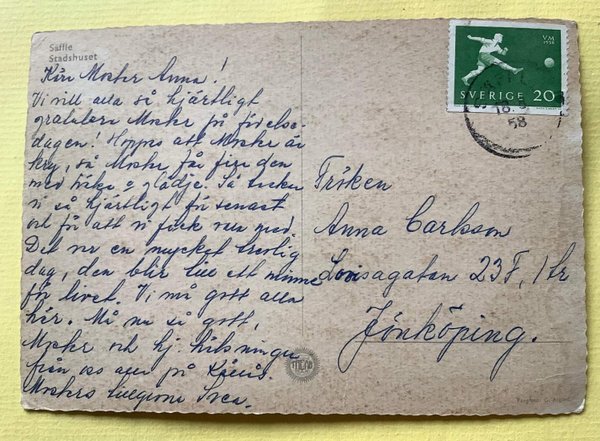 Säffle
Stadshuset
Kära Moster Anna!
Vi vill alla så hjärtligt
gratulera Moster på födelse-
dagen! Hoppas att Moster är
kry, så Moster får fira den
med hälsa o glädje. Så tackar
vi så hjärtligt för senast
och för att vi fick vara med.
Det var en mycket trevlig
dag, den blir till ett minne
för livet. Vi må gott alla
här. Må nu så gott,
Moster och hj. hälsningar
från oss alla på
Mosters tillgivna Svea.
VM
1958
SVERIGE 20
18.
58
Fröken
Anna Carlsson
Lovisagatan 23 F, 1 tr
Jönköping.